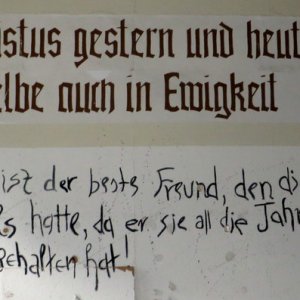 istus gestern und heut
elbe auch in Ewigkeit
ist der beste Freund, den di
hatte, da er sie all die Jahr
gehalten hat!